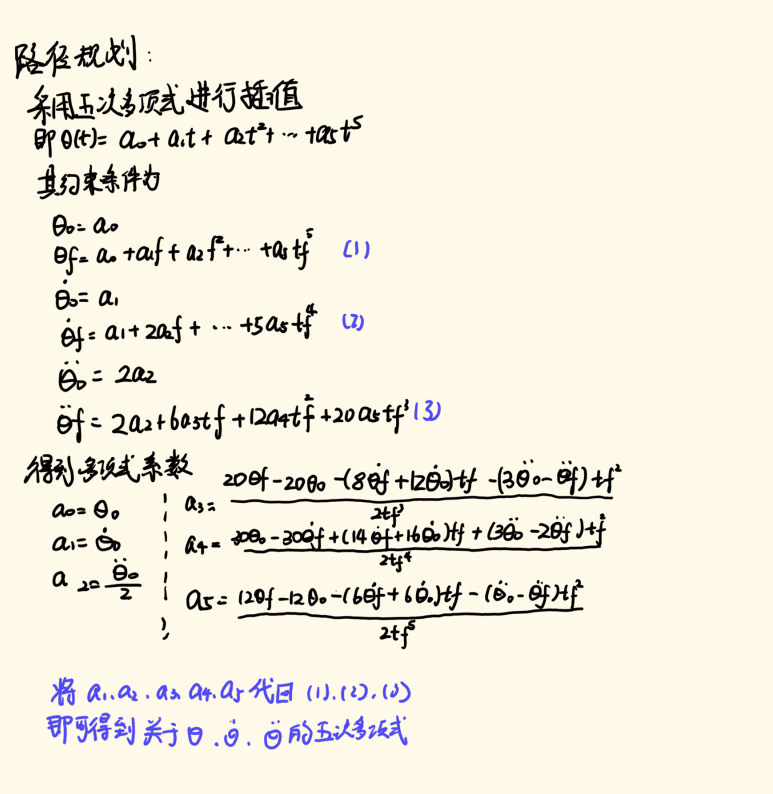 路径规划:
采用五次多项式进行插值
即θ(t)= a₀+a₁t+ a₂t²+ ⋯ +a₅t⁵
其约束条件为
θ₀=a₀
θf= a₀+a₁f+a₂f²+⋯+a₅tf⁵ (1)
θ̇₀= a₁
θ̇f= a₁+2a₂f+ ⋯ +5a₅tf⁴ (2)
θ̈₀= 2a₂
θ̈f= 2a₂+6a₃tf+12a₄tf²+20a₅tf³ (3)
得到多项式系数
a₀=θ₀
a₁=θ̇₀
a₂=θ̈₀/2
a₃= (20θf-20θ₀-(8θ̇f+12θ̇₀)tf-(3θ̈₀-θ̈f)tf²)/2tf³
a₄= (30θ₀-30θ̇f+(14θ̇f+16θ̇₀)tf+(3θ̈₀-2θ̈f)tf²)/2tf⁴
a₅= (12θf-12θ₀-(6θ̇f+6θ̇₀)tf-(θ̈₀-θ̈f)tf²)/2tf⁵
将 a₁、a₂、a₃、a₄、a₅ 代回 (1)、(2)、(3)
即可得到关于θ、θ̇、θ̈的五次多项式